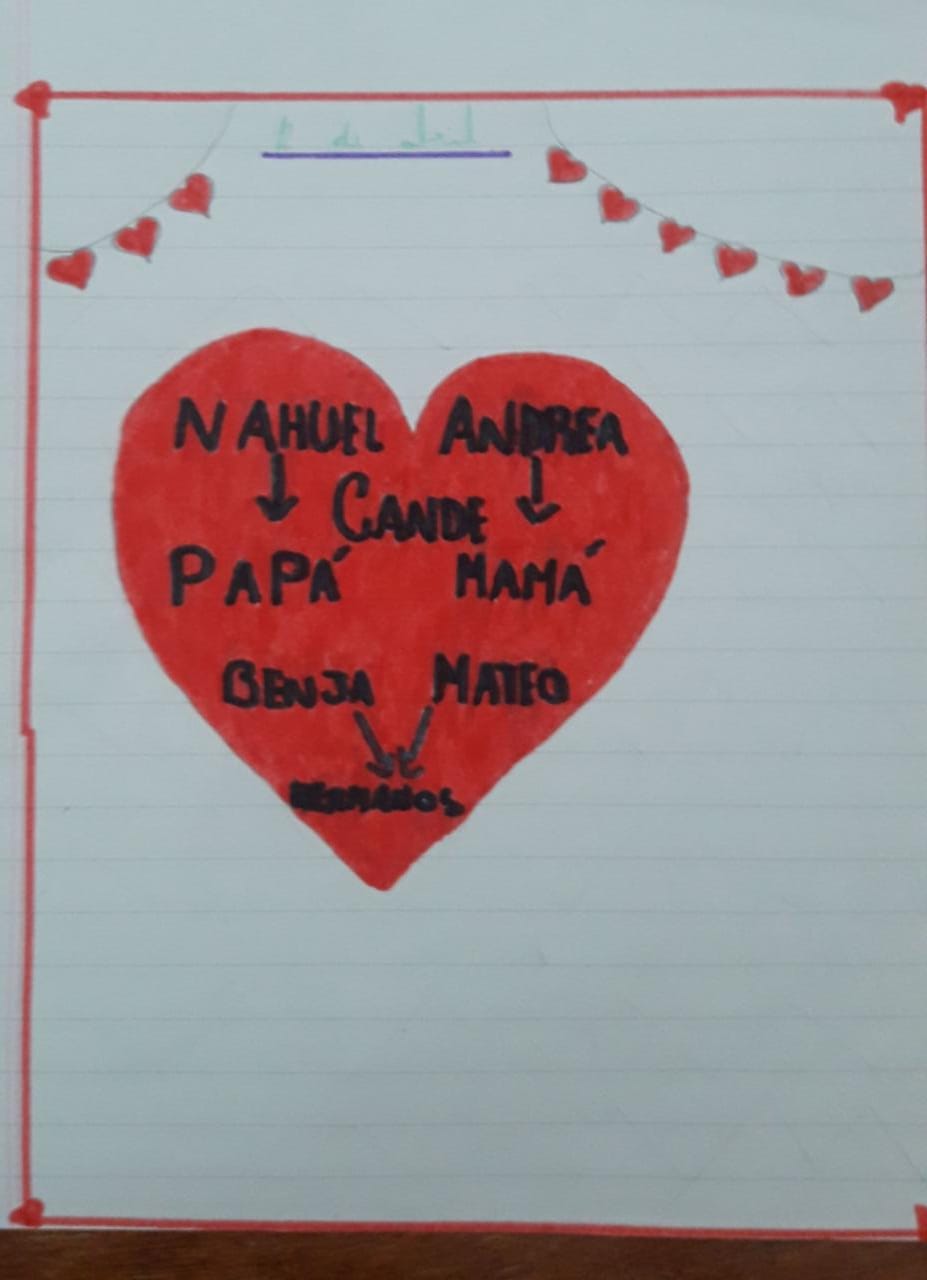 de abril
NAHUEL ANDREA
CANDE
PAPÁ MAMÁ
BENJA MATEO
HERMANOS